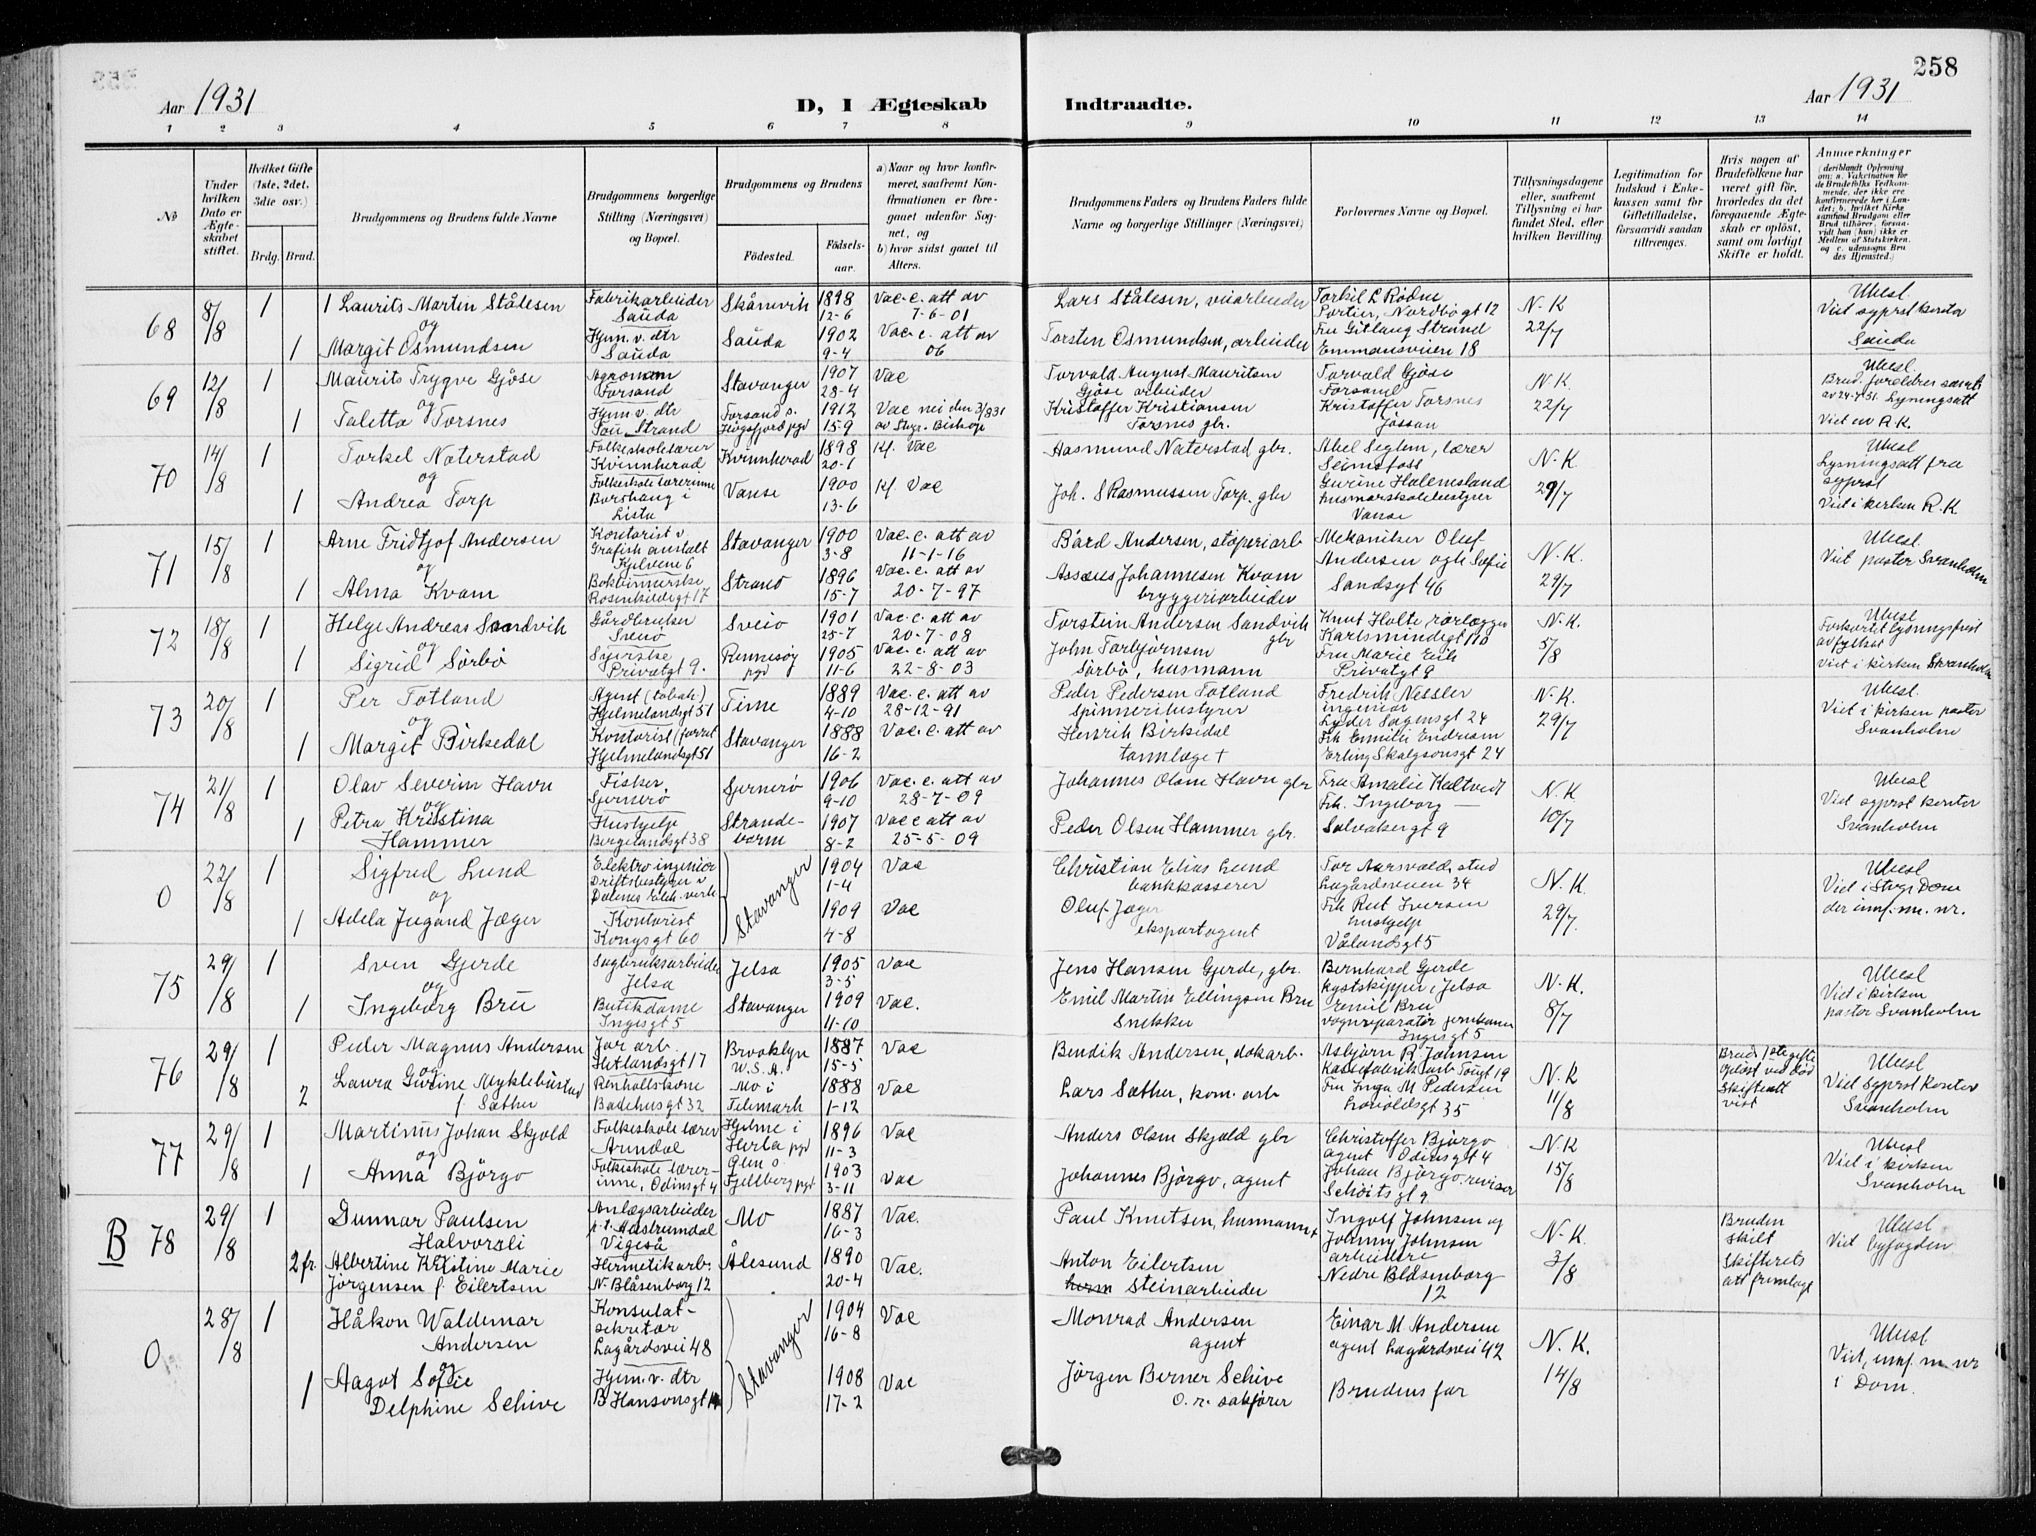 258
Aar 1931
D, I Ægteskab
Indtraadte.
Aar 1931
1 2 3 4 5 6 7 8 9 10 11 12 13 14
No
Under hvilken Dato er Ægteskabet stiftet.
Hvilket Gifte (1ste, 2det, 3die osv.)
Brdg. Brud.
Brudgommens og Brudens fulde Navne
Brudgommens borgerlige Stilling (Næringsvei) og Bopæl.
Brudgommens og Brudens
Fødested.
Fødselsaar.
a) Naar og hvor konfirmeret, saafremt Konfirmationen er foregaaet udenfor Sognet, og
b) hvor sidst gaaet til Alters.
Brudgommens Faders og Brudens Faders fulde Navne og borgerlige Stillinger (Næringsvei)
Forlovernes Navne og Bopæl.
Tillysningsdagene eller, saafremt Tillysning ei har fundet Sted, efter hvilken Bevilling.
Legitimation for Indskud i Enkekassen samt for Giftetilladelse, forsaavidt saadan tiltrænges.
Hvis nogen af Brudefolkene har været gift før, hvorledes da det foregaaende Ægteskab er opløst, samt om lovligt Skifte er holdt.
Anmærkninger
68 8/8 1
1 Laurits Martin Stålesen
og
1 Margit Osmundsen
Fabrikarbeider
Sauda
Hjem. v. dtr
Sauda
Skånevik
Sauda
1898
12-6
1902
9-4
Vac. c. att av
7-6-01
Vac. c. att av
06
Lars Stålesen, veiarbeider
Torsten Osmundsen, arbeider
Portier, Nordbøgt 12
Fru Gitlaug Strand
Emmausveien 18
N-K
22/7
Ubesl.
Viet sogprst kontor
Sauda
69 12/8 1
Maurits Trygve Gjöse
og
1 Taletta Torsnes
Agronom
Forsand
Hjem. v. dtr
Tau Strand
Stavanger
Forsand s.
Høgsfjord pgd
1907
28-4
1912
15-9
Vac
Vac nei den 3/8 31
av Stvgr. Biskop
Torvald August Mauritsen
Gjöse arbeider
Kristoffer Kristiansen
Torsnes gbr.
Torvald Gjöse
Forsand
Kristoffer Torsnes
Jössan
N.K.
22/7
Ubesl.
Brud. foreldres samt.
av 24-7 31. Lysningsatt
Viet av R.K.
70 14/8 1
Torkel Naterstad
og
1 Andrea Torp
Folkeskolelærer
Kvinnherad
Folkeskolelærerinne
Borshaug i
Lista
Kvinnherad
Vanse
1898
20-1
1900
13-6
Kf. Vac
Kf Vac
Aasmund Naterstad gbr.
Joh. S Rasmussen Torp. gbr
Abel Seglem, lærer
Seimsfoss
Gurine Halemsland
husmorskolebestyrer
Vanse
N-K.
29/7
Ubesl
Lysningsatt fra
sogprst
Viet i kirken R.K
71 15/8 1
Arne Fridtjof Andersen
og
1 Alma Kvam
Kontorist v
Grafisk anstalt
Kjelvene 6
Bokbinnerske
Rosenkildegt 17
Stavanger
Strand
1900
3-8
1896
15-7
Vac. c. att av
11-1-16
Vac. c. att av
20-7-97
Bård Andersen, støperiarb
Assæus Johannesen Kvam
bryggeriarbeider
Mekaniker Oluf
Andersen og fr Sofie
Sandsgt 46
N-K.
29/7
Ubesl.
Viet pastor Svanholm
72 18/8 1
Helge Andreas Sandvik
og
1 Sigrid Sörbö
Gårdbruker
Sveio
Syerske
Privatgt 9.
Sveio
Rennesöy
pgd
1901
25-7
1905
11-6
Vac. c. att av
20-7-08
Vac. c. att av
22-8-03
Torstein Andersen Sandvik
gbr
John Torbjörnsen
Sörbö, husmann
Knut Holte, rörlegger
Karlsmindegt 11B
Fru Marie Eik
Privatgt 9
N-K.
5/8
Ubesl
Forkortet lysningsfrist
av fylket
Viet i kirken Svanholm
73 20/8 1
Per Totland
og
1 Margit Birkedal
Agent (tobak)
Hjelmelandsgt 51
Kontorist (forret
Hjelmelandsgt 51
Time
Stavanger
1889
4-10
1888
16-2
Vac. c. att av
28-12-91
Vac. c. att av
Peder Pedersen Totland
Spinneribestyrer
Henrik Birkedal
tannlæge +
Fredrik Nessler
ingeniør
Lyder Sagensgt 24
Frk Emilie Endresen
Erling Skalgsonsgt 24
N-K.
29/7
Ubesl.
Viet i kirken pastor
Svanholm
74 21/8 1
Olav Severin Havn
og
1 Petra Kristina
Hammer
Fisker
Sjernerö
Hushjelp
Bergelandsgt 38
Sjernerö
Strandebarm
1906
9-10
1907
8-2
Vac. c. att av
28-7-09
Vac c att av
25-5-09
Johannes Olsen Havn gbr
Peder Olsen Hammer gbr.
Fru Amalie Kaltvedt
Frk. Ingeborg —
Solvbergt 9
N.K
10/7
Ubesl
Viet sogprst kontor
Svanholm
0 22/8 1
Sigfred Lund
og
1 Adela Jugand Jæger
Elektro ingeniør
Driftsbestyrer v
Dalenes elek. verk
Kontorist
Kongsgt 60
Stavanger
1904
1-4
1909
4-8
Vac
Vac
Christian Elias Lund
bankkasserer
Oluf Jæger
eksportagent
Tor Aarsvold, stud
Lagårdsveien 34
Frk Rut Iversen
hushjelp
Vålandsgt 5
N.K.
29/7.
Ubesl
Viet i Stvgr Dom
der innf. m. nr.
75 29/8 1
Sven Gjerde
og
1 Ingeborg Bru
Sagbruksarbeider
Jelsa
Butikdame
Ingesgt 5
Jelsa
Stavanger
1905
3-5
1909
11-10
Vac
Vac.
Jens Hansen Gjerde, gbr.
Emil Martin Ellingsen Bru
Snekker
Bernhard Gjerde
kystskipper, Jelsa
Emil Bru
vognreparatør jernbanen
Ingesgt 5
N-K.
8/7
Ubesl
Viet i kirken
pastor Svanholm
76 29/8 1
Peder Magnus Andersen
og
2 Laura Gurine Myklebustad
f. Sæther
Jor arb.
Hetlandsgt 17
Renholdskone
Badehusgt 32
Brooklyn
U.S.A.
Mo i
Telemark
1887
15-5
1888
1-12
Vac
Vac
Bendik Andersen, dokarb.
Lars Sæther, kom. arb
Asbjörn R. Johnsen
Kassefabrik arb Torgt 19
Fru Inga M Pedersen
Haraldsgt 35
N.K
11/8
Bruds 1ste gifte
opløst ved død
Skifteatt
vist
Ubesl
Viet sogprst kontor
Svanholm
77 29/8 1
Martinus Johan Skjold
og
1 Anna Björgo
Folkeskolelærer
Arendal
Folkeskolelærerinne, Odinsgt 4
Hjelme i
Herla pgd
Ølen s.
Fjellberg pgd
1896
11-3
1903
3-11
Vac
Vac
Anders Olsen Skjold gbr
Johannes Björgo, agent
Christoffer Björgo
agent Odinsgt 4
Johan Björgo, revisor
Schöitsgt 9
N-K
15/8
Ubesl
Viet i kirken
Svanholm
B 78 29/8 1
Gunnar Paulsen
Halvorsli
2 fr. Albertine Kristine Marie
Jörgensen f. Eilertsen
Anlægsarbeider
p.t. Aastrumdal
Vigeså
Hermetikarb.
N. Blåsenborg 12
Mo
Ålesund
1887
16-3
1890
20-4
Vac.
Vac.
Paul Knutsen, husmann +
Anton Eilertsen
Steinarbeider
Ingolf Johnsen og
Johnny Johnsen
arbeidere
Nedre Blåsenborg
12
N-K.
3/8
Bruden
skilt
Skifterets
att fremlagt
Ubesl
Viet byfogden
0 28/8 1
Håkon Waldemar
Andersen
og
1 Aagot Sofie
Delphine Schive
Konsulatsekretær
Lagårdsvei 48
Hjem. v. dtr
B Hansonsgt
Stavanger
1904
16-8
1908
17-2
Vac
Vac
Monrad Andersen
agent
Jörgen Berner Schive
O. r. sakfører
Einar M Andersen
agent Lagårdsvei 42
Brudens far
N.K.
14/8
Ubesl
Viet, innf. m nr
i Dom.